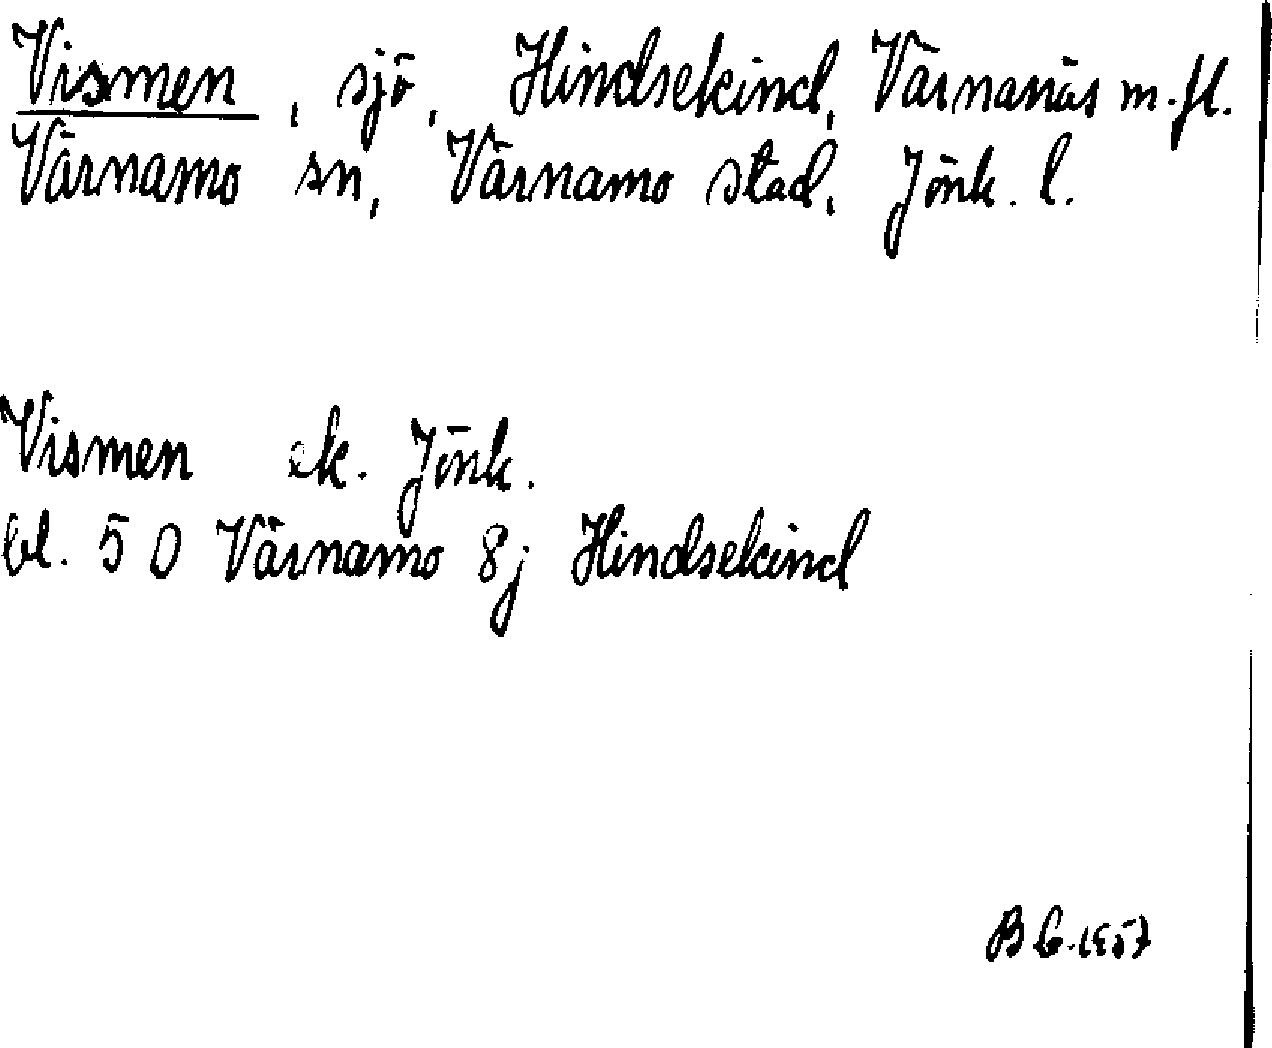 Vismen, sjö, Hindsekind, Värnanäs m.fl.
Värnamo sn, Värnamo stad, Jönk. l.
Vismen ek. Jönk.
bl. 5 O Värnamo 8j Hindsekind
BG.1957